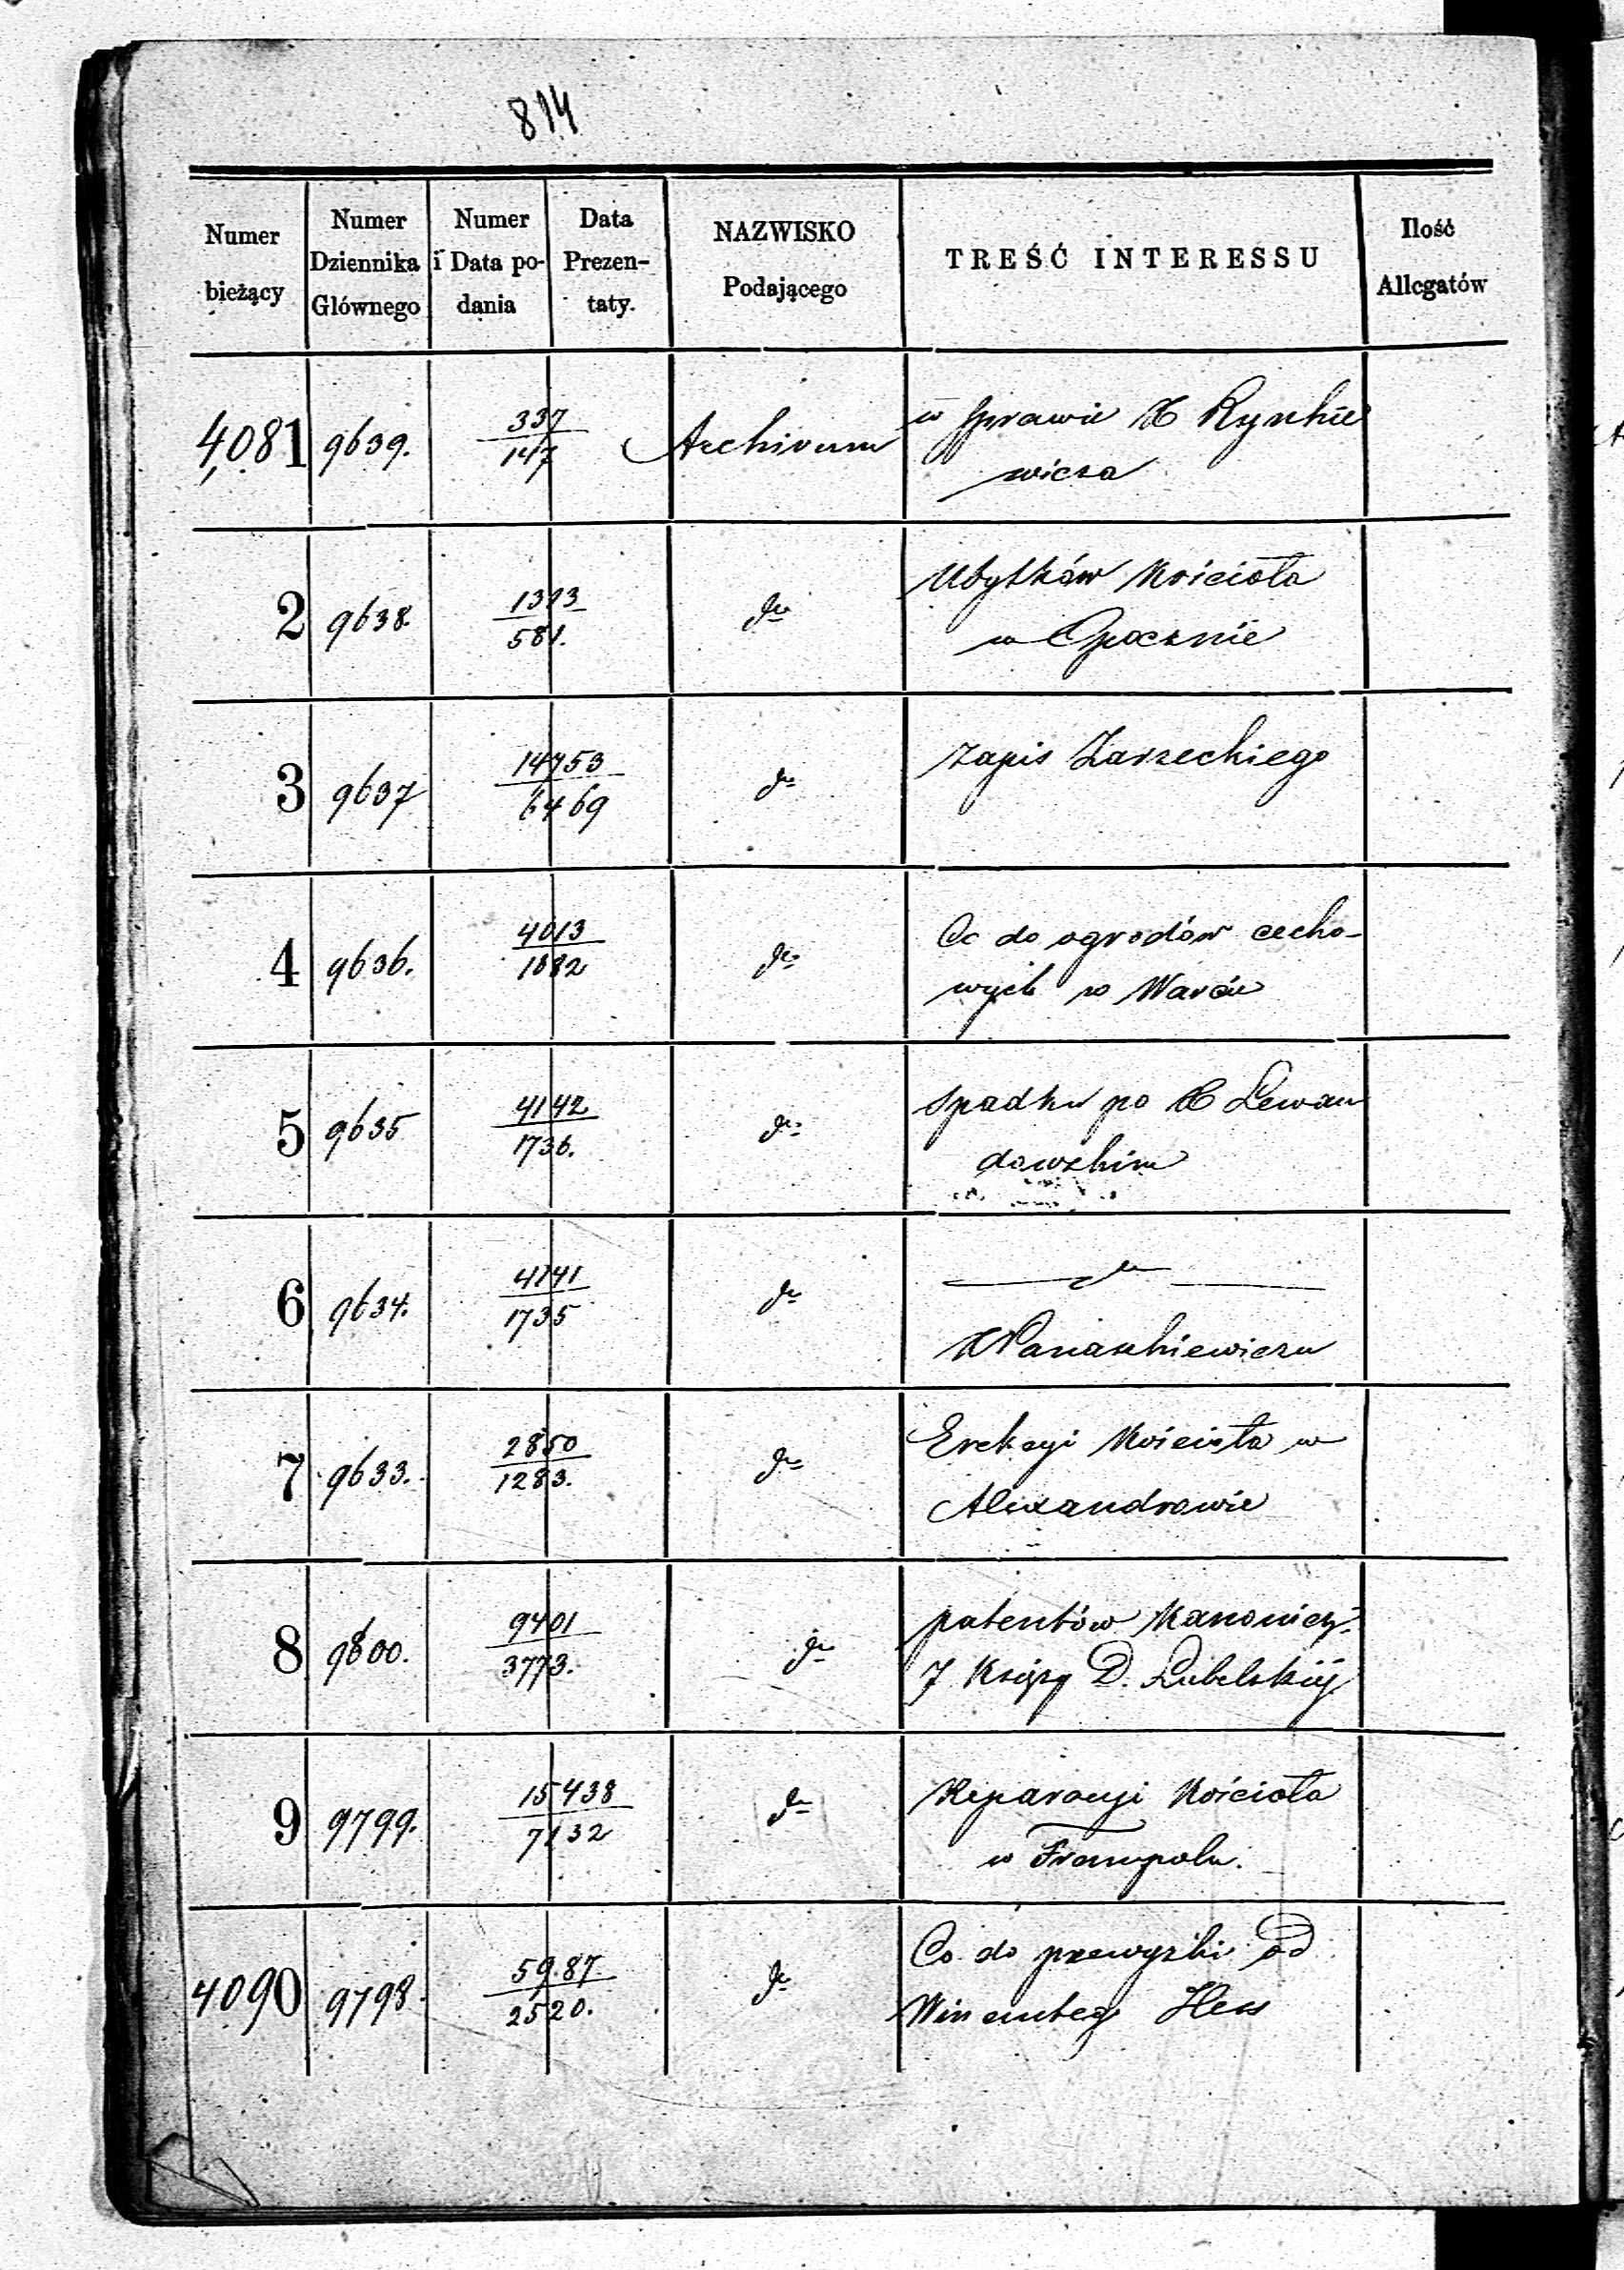 814
Numer bieżący
Numer Dziennika Głównego
Numer i Data podania
Data Prezentaty.
NAZWISKO Podającego
TREŚĆ INTERESSU
Ilość Allegatów
4,081 9639. 337/147 Archivum w sprawie X Rynkie
wicza
2 9638. 1313/581. do Ubytków Kościoła
w Opocznie
3 9637 14753/6469 do Zapis Zarzeckiego
4 9636. 4013/1882 do Co do ogrodów cecho-
wych w Warcie
5 9635 4142/1736. do Spadku po X Lewan
dowskim
6 9634. 4141/1735 do do
7 9633. 2850/1283. do Erekcyi Kościoła w
Alexandrowie
8 9800. 9401/3773. do patentów Kanonicz.
7 Księży D. Lubelskiéj
9 9799. 15438/7132 do Reparacyi Kościoła
w Frampolu.
4090 9798. 5987/2520. do Co do przewyżki od
Hess